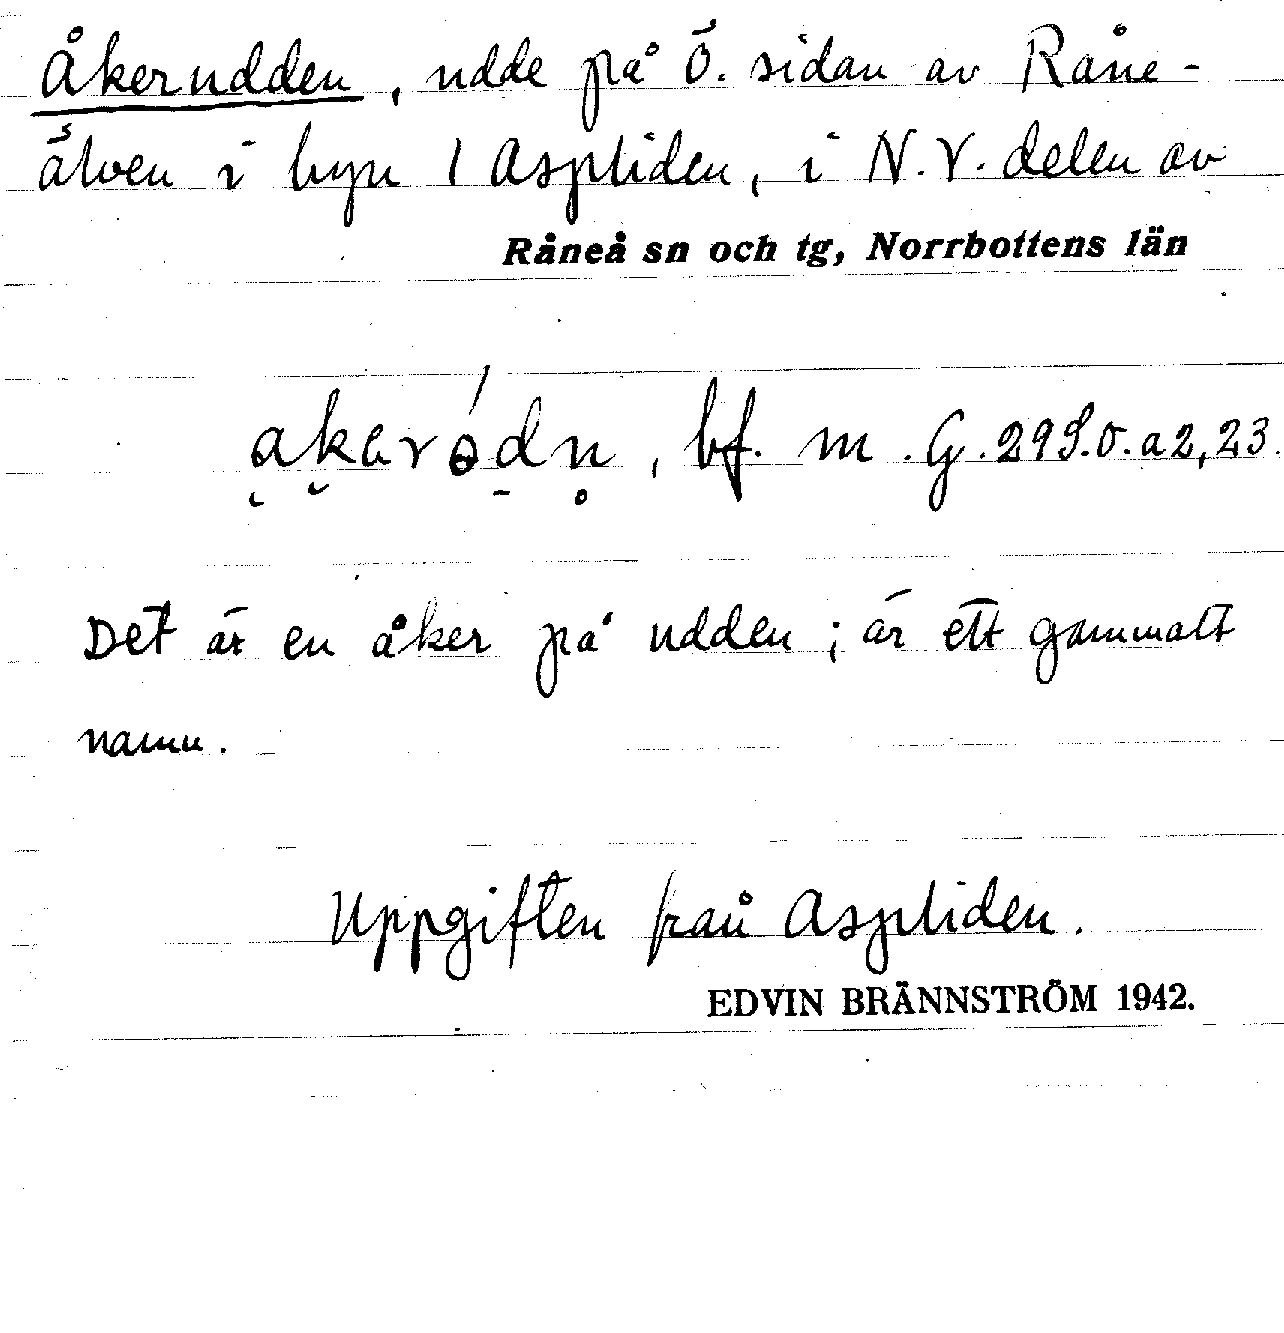 Åkerudden, udde på Ö. sidan av Råne-
älven i byn 1 Aspliden, i N.V. delen av
Råneå sn och tg, Norrbottens län
bf. m. G.
Det är en åker på udden; är ett gammalt
namn.
Uppgiften från Aspliden.
EDVIN BRÄNNSTRÖM 1942.